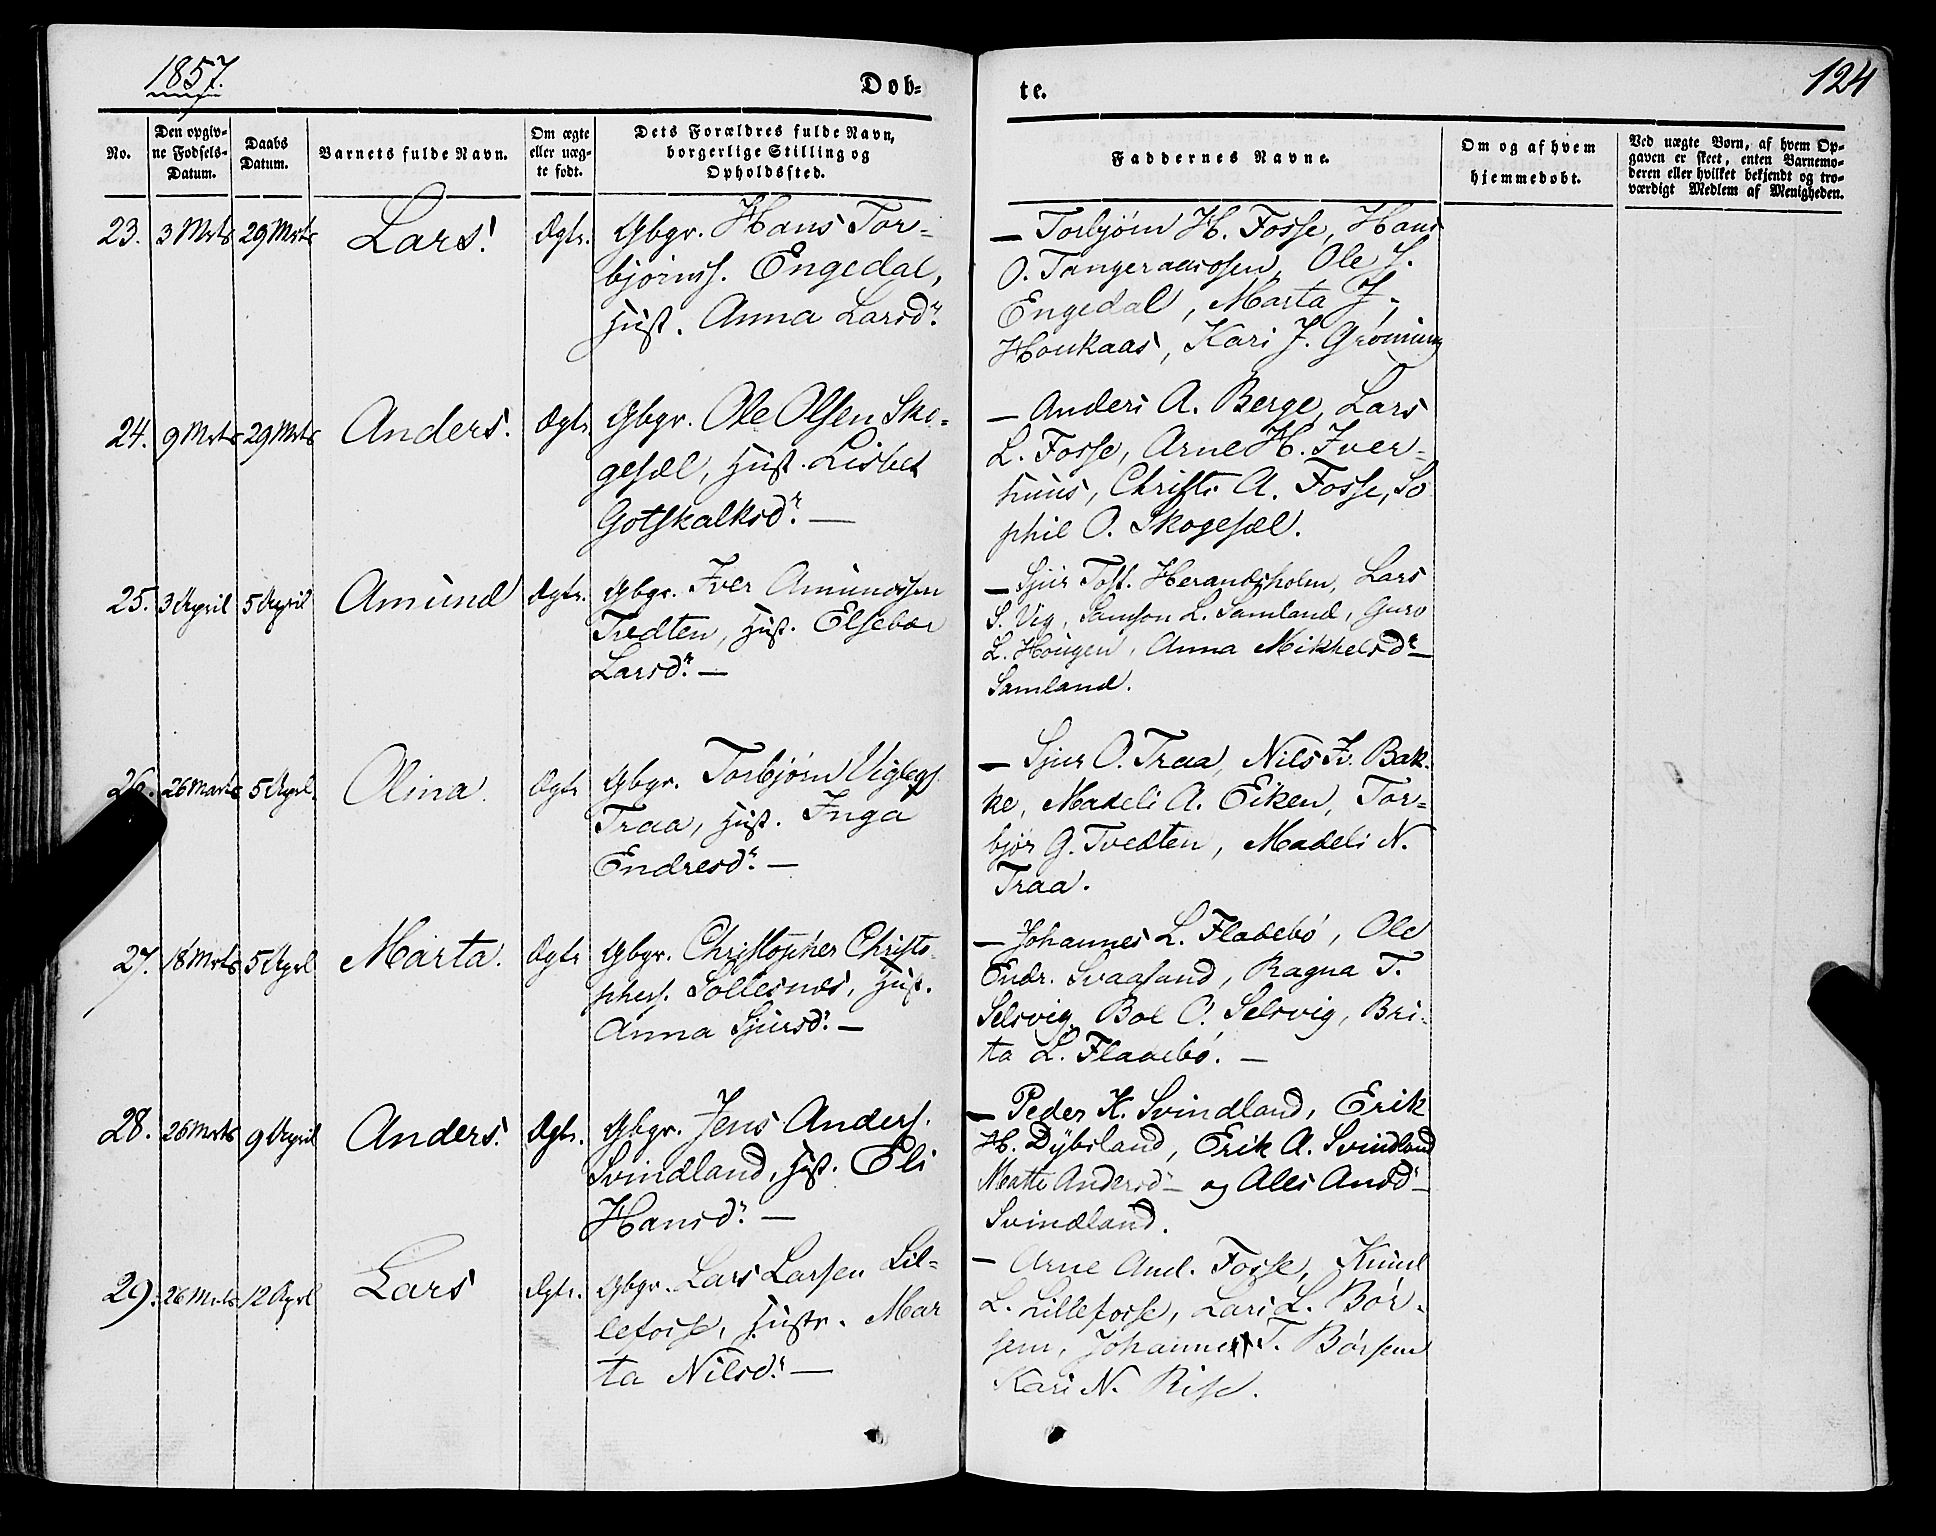 1857.
Døb-
te.
124
No.
Den opgiv-
ne Fødsels-
Datum.
Daabs
Datum.
Barnets fulde Navn.
Om ægte
eller uæg-
te født.
Dets Forældres fulde Navn,
borgerlige Stilling og
Opholdssted.
Faddernes Navne.
Om og af hvem
hjemmedøbt.
Ved uægte Børn, af hvem Op-
gaven er skeet, enten Barnemo-
deren eller hvilket bekjendt og tro-
værdigt Medlem af Menigheden.
23.
3 Mrts
29 Mrts
Lars.
Ægte.
Gbgr. Hans Tor-
bjørns. Engedal,
Hust. Anna Larsdr.
— Torbjørn H. Fosse, Hans
O. Tangeraasosen, Ole J.
Engedal, Marta J.
Houkaas, Kari J. Grøning
24.
9 Mrts
29 Mrts
Anders.
Ægte
Gbgr. Ole Olsen Sko-
gesæl, Hust. Lisbet
Gotskalksdr. —
— Anders A. Berge, Lars
L. Fosse, Arne H. Iver-
huus, Christi A. Fosse, So
phie O. Skogesæl.
25.
3 April
5 April
Amund
Ægte.
Gbgr. Iver Amundsen
Tvedten, Hust. Elsebær
Larsdr. —
— Sjur Tost. Herandsholm, Lars
S. Vig, Samson L. Samland, Guro
L. Hougen, Anna Mikkelsdr —
Samland.
26.
26 Marts
5 Aprl.
Olina.
Ægte
Gbgr. Torbjørn Viglegs.
Traa, Hust. Inga
Endresdr. —
— Sjur O. Traa, Nils Iv. Bak-
ke, Madeli A. Eiken, Tor-
bjør G. Tvedten, Madeli N.
Traa.
27.
18 Mrts
5 Aprl
Marta.
Ægte
Gbgr. Christopher Christo-
phers. Sollesnæs, Hust.
Anna Sjursdr. —
— Johannes L. Fladebø, Ole
Endr. Svaasand, Ragna T.
Selsvig, Boe O. Selsvig, Bri-
ta L. Fladebø. —
28.
26 Mrts
9 April
Anders.
Ægte.
Gbgr. Jens Anders.
Svindland, Hust. Eli
Hansdr. —
— Peder K. Svindland, Erik
H. Dybsland, Erik A. Svindland
Matte Andersdr — og Ales Andsdr —
Svindland.
29.
26 Mrts
12 Aprl
Lars
Ægte.
Gbgr. Lars Larsen Lil-
lefosse, Hustr. Mar
ta Nilsdr. —
— Arne And. Fosse, Knud
L. Lillefosse, Lars L. Bør-
sem, Johanne T. Børsem
Kari N. Rise.